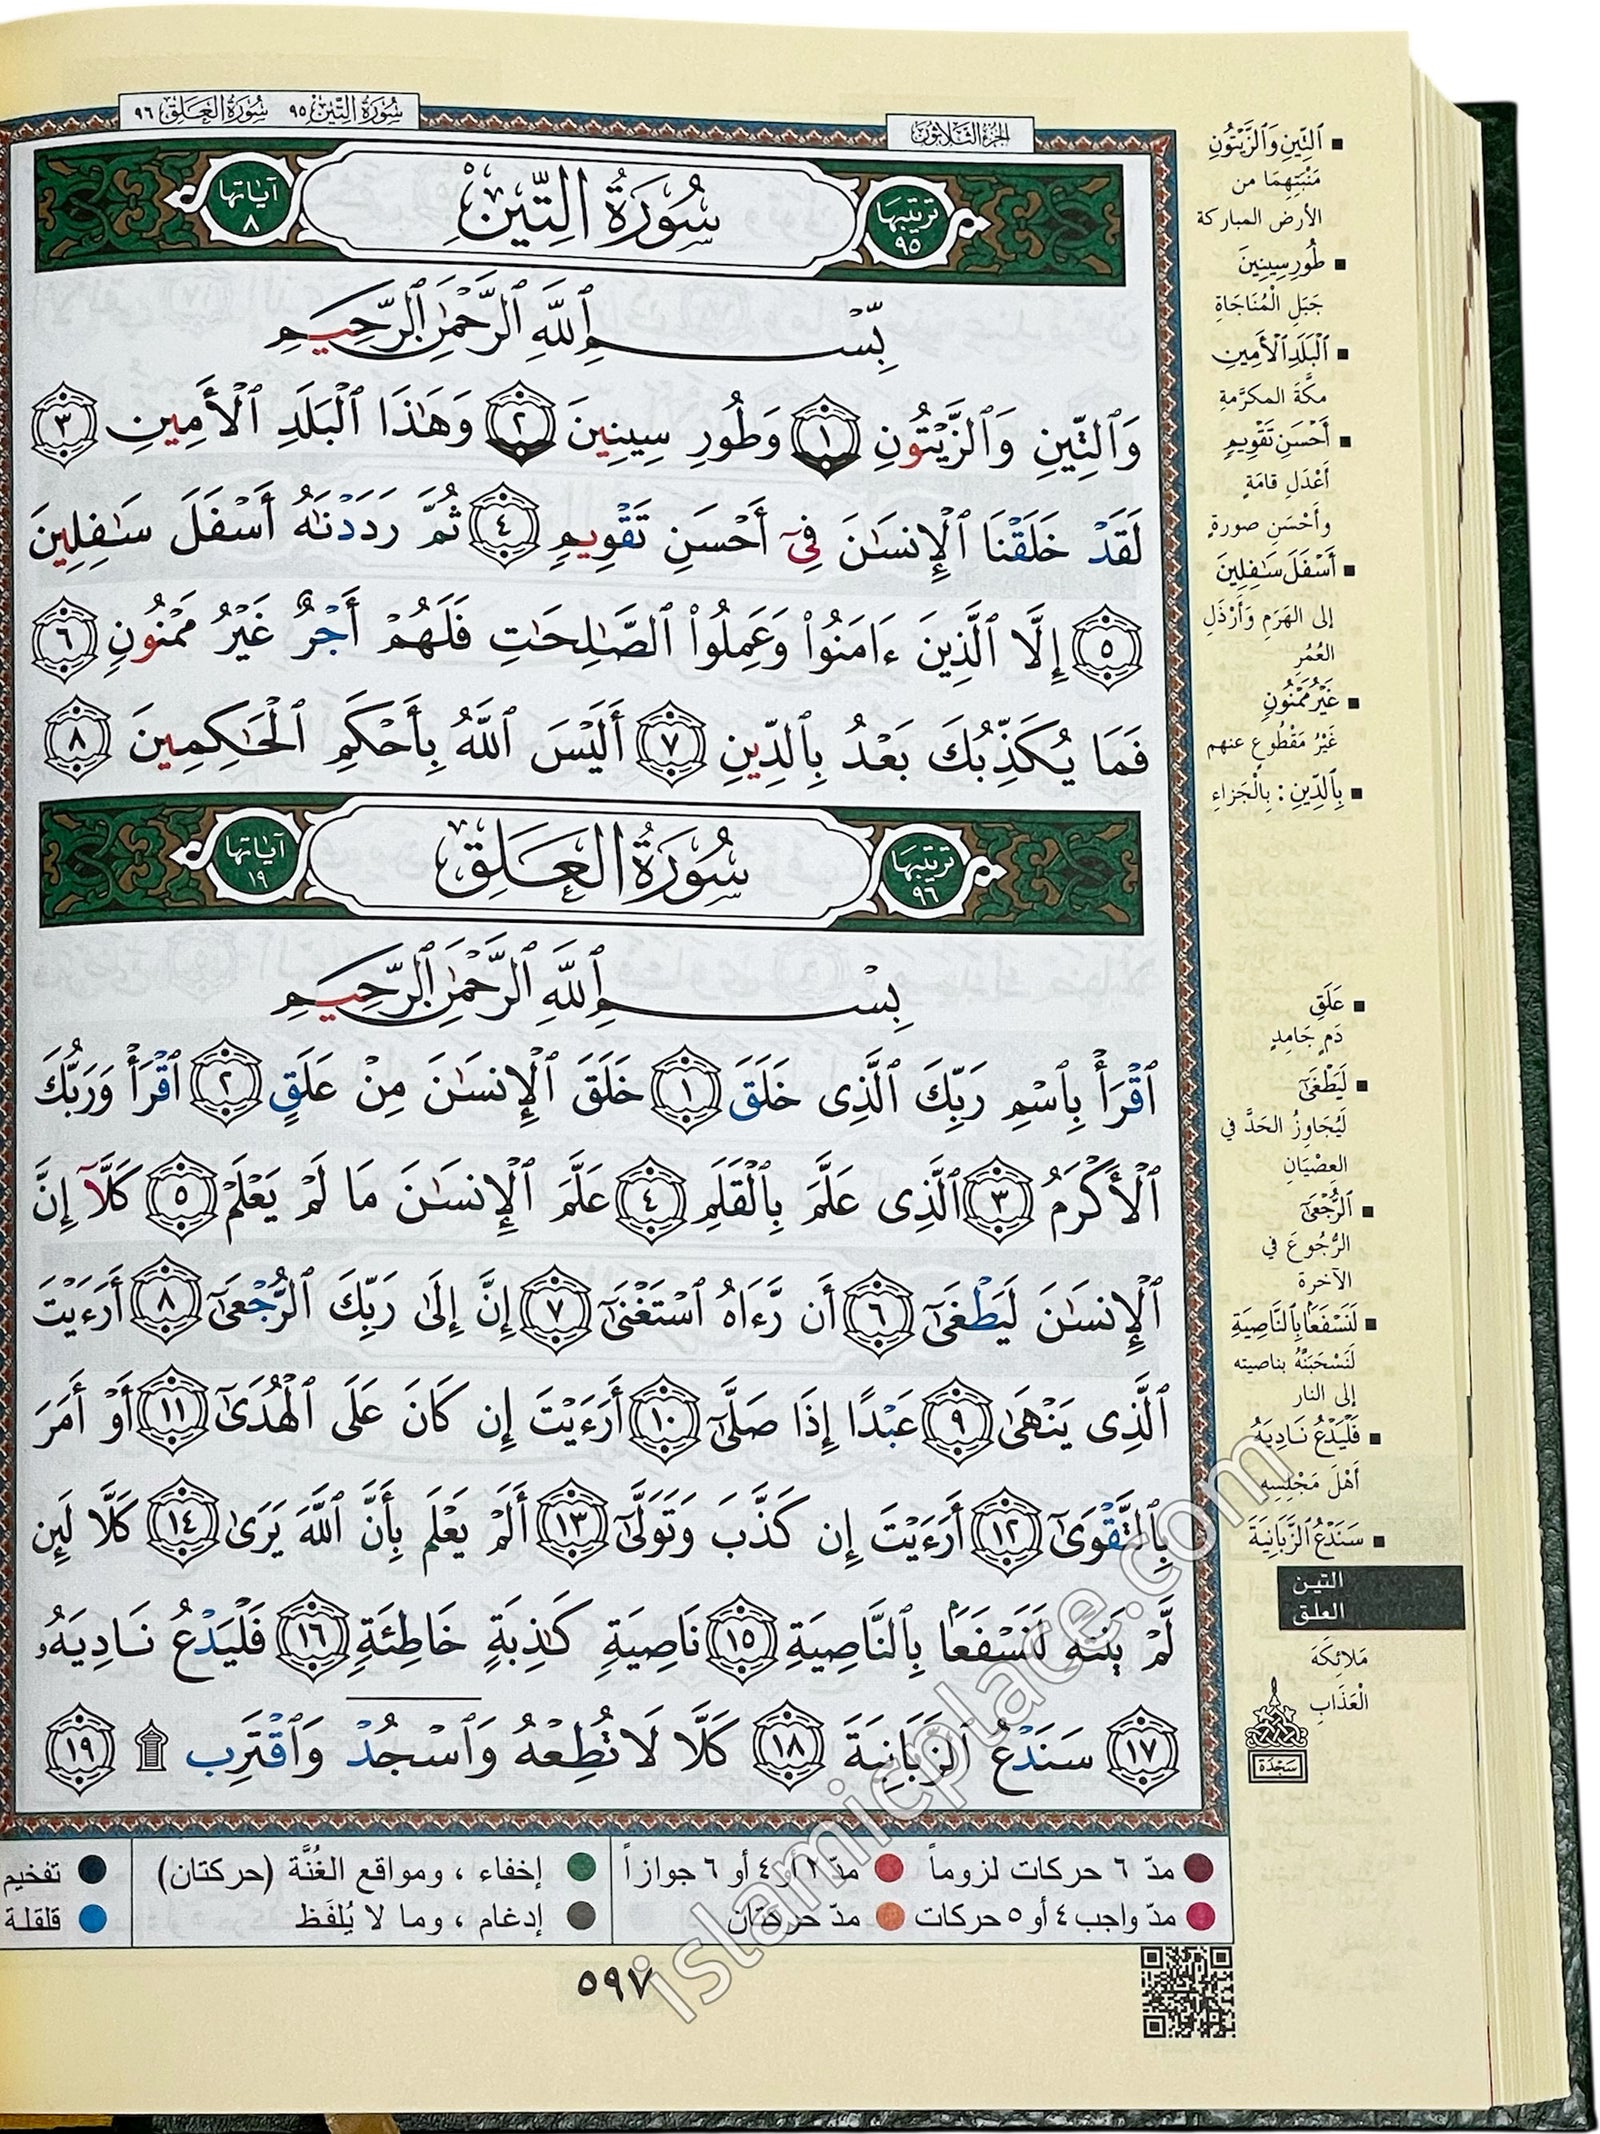 سُورَةُ التِّينِ ٩٥ سُورَةُ العَلَقِ ٩٦
الجزء الثلاثون
ترتيبها ٩٥
سُورَةُ التِّينِ
آياتها ٨
بِّسۡمِ ٱللَّهِ ٱلرَّحۡمَٰنِ ٱلرَّحِيمِ
وَٱلتِّينِ وَٱلزَّيۡتُونِ ١ وَطُورِ سِينِينَ ٢ وَهَٰذَا ٱلۡبَلَدِ ٱلۡأَمِينِ ٣
لَقَدۡ خَلَقۡنَا ٱلۡإِنسَٰنَ فِيٓ أَحۡسَنِ تَقۡوِيمٖ ٤ ثُمَّ رَدَدۡنَٰهُ أَسۡفَلَ سَٰفِلِينَ
٥ إِلَّا ٱلَّذِينَ ءَامَنُواْ وَعَمِلُواْ ٱلصَّٰلِحَٰتِ فَلَهُمۡ أَجۡرٌ غَيۡرُ مَمۡنُونٖ ٦
فَمَا يُكَذِّبُكَ بَعۡدُ بِٱلدِّينِ ٧ أَلَيۡسَ ٱللَّهُ بِأَحۡكَمِ ٱلۡحَٰكِمِينَ ٨
ترتيبها ٩٦
سُورَةُ العَلَقِ
آياتها ١٩
بِسۡمِ ٱللَّهِ ٱلرَّحۡمَٰنِ ٱلرَّحِيمِ
ٱقۡرَأۡ بِٱسۡمِ رَبِّكَ ٱلَّذِي خَلَقَ ١ خَلَقَ ٱلۡإِنسَٰنَ مِنۡ عَلَقٍ ٢ ٱقۡرَأۡ وَرَبُّكَ
ٱلۡأَكۡرَمُ ٣ ٱلَّذِي عَلَّمَ بِٱلۡقَلَمِ ٤ عَلَّمَ ٱلۡإِنسَٰنَ مَا لَمۡ يَعۡلَمۡ ٥ كَلَّآ إِنَّ
ٱلۡإِنسَٰنَ لَيَطۡغَىٰٓ ٦ أَن رَّءَاهُ ٱسۡتَغۡنَىٰٓ ٧ إِنَّ إِلَىٰ رَبِّكَ ٱلرُّجۡعَىٰٓ ٨ أَرَءَيۡتَ
ٱلَّذِي يَنۡهَىٰ ٩ عَبۡدًا إِذَا صَلَّىٰٓ ١٠ أَرَءَيۡتَ إِن كَانَ عَلَى ٱلۡهُدَىٰٓ ١١ أَوۡ أَمَرَ
بِٱلتَّقۡوَىٰٓ ١٢ أَرَءَيۡتَ إِن كَذَّبَ وَتَوَلَّىٰٓ ١٣ أَلَمۡ يَعۡلَم بِأَنَّ ٱللَّهَ يَرَىٰ ١٤ كَلَّا لَئِن
لَّمۡ يَنتَهِ لَنَسۡفَعَۢا بِٱلنَّاصِيَةِ ١٥ نَاصِيَةٖ كَٰذِبَةٍ خَاطِئَةٖ ١٦ فَلۡيَدۡعُ نَادِيَهُۥ
١٧ سَنَدۡعُ ٱلزَّبَانِيَةَ ١٨ كَلَّا لَا تُطِعۡهُ وَٱسۡجُدۡۤ وَٱقۡتَرِب ۩ ١٩
■ ٱلتِّينِ وَٱلزَّيۡتُونِ
مَنْبَتِهِمَا من
الأرض المباركة
■ طُورِ سِينِينَ
جَبَلِ الْمُنَاجَاةِ
■ ٱلۡبَلَدِ ٱلۡأَمِينِ
مكَّةَ المكرَّمةِ
■ أَحۡسَنِ تَقۡوِيمٖ
أَعْدَلِ قامَةٍ
وأحْسَنِ صورةٍ
■ أَسۡفَلَ سَٰفِلِينَ
إلى الهَرَمِ وأَرْذَلِ
العُمُرِ
■ غَيۡرُ مَمۡنُونٖ
غَيْرُ مَقْطُوعٍ عنهم
■ بِٱلدِّينِ : بِالْجَزاءِ
■ عَلَقٍ
دَمٍ جَامِدٍ
■ لَيَطۡغَىٰٓ
لَيُجَاوِزُ الحَدَّ في
العِصْيَانِ
■ ٱلرُّجۡعَىٰٓ
الرُّجُوعَ في
الآخرة
■ لَنَسۡفَعَۢا بِٱلنَّاصِيَةِ
لَنَسْحَبَنَّهُ بناصيته
إلى النار
■ فَلۡيَدۡعُ نَادِيَهُۥ
أَهْلَ مَجْلِسِه
■ سَنَدۡعُ ٱلزَّبَانِيَةَ
التين
العلق
مَلائِكَةَ
الْعَذَابِ
سَجْدَة
● مدّ ٦ حركات لزوماً ● مدّ ٢ أو ٤ أو ٦ جوازاً
● مدّ واجب ٤ أو ٥ حركات ● مدّ حركتان
● إخفاء ، ومواقع الغُنَّة (حركتان)
● إدغام ، وما لا يُلفَظ
● تفخيم
● قلقلة
٥٩٧
islamicplace.com